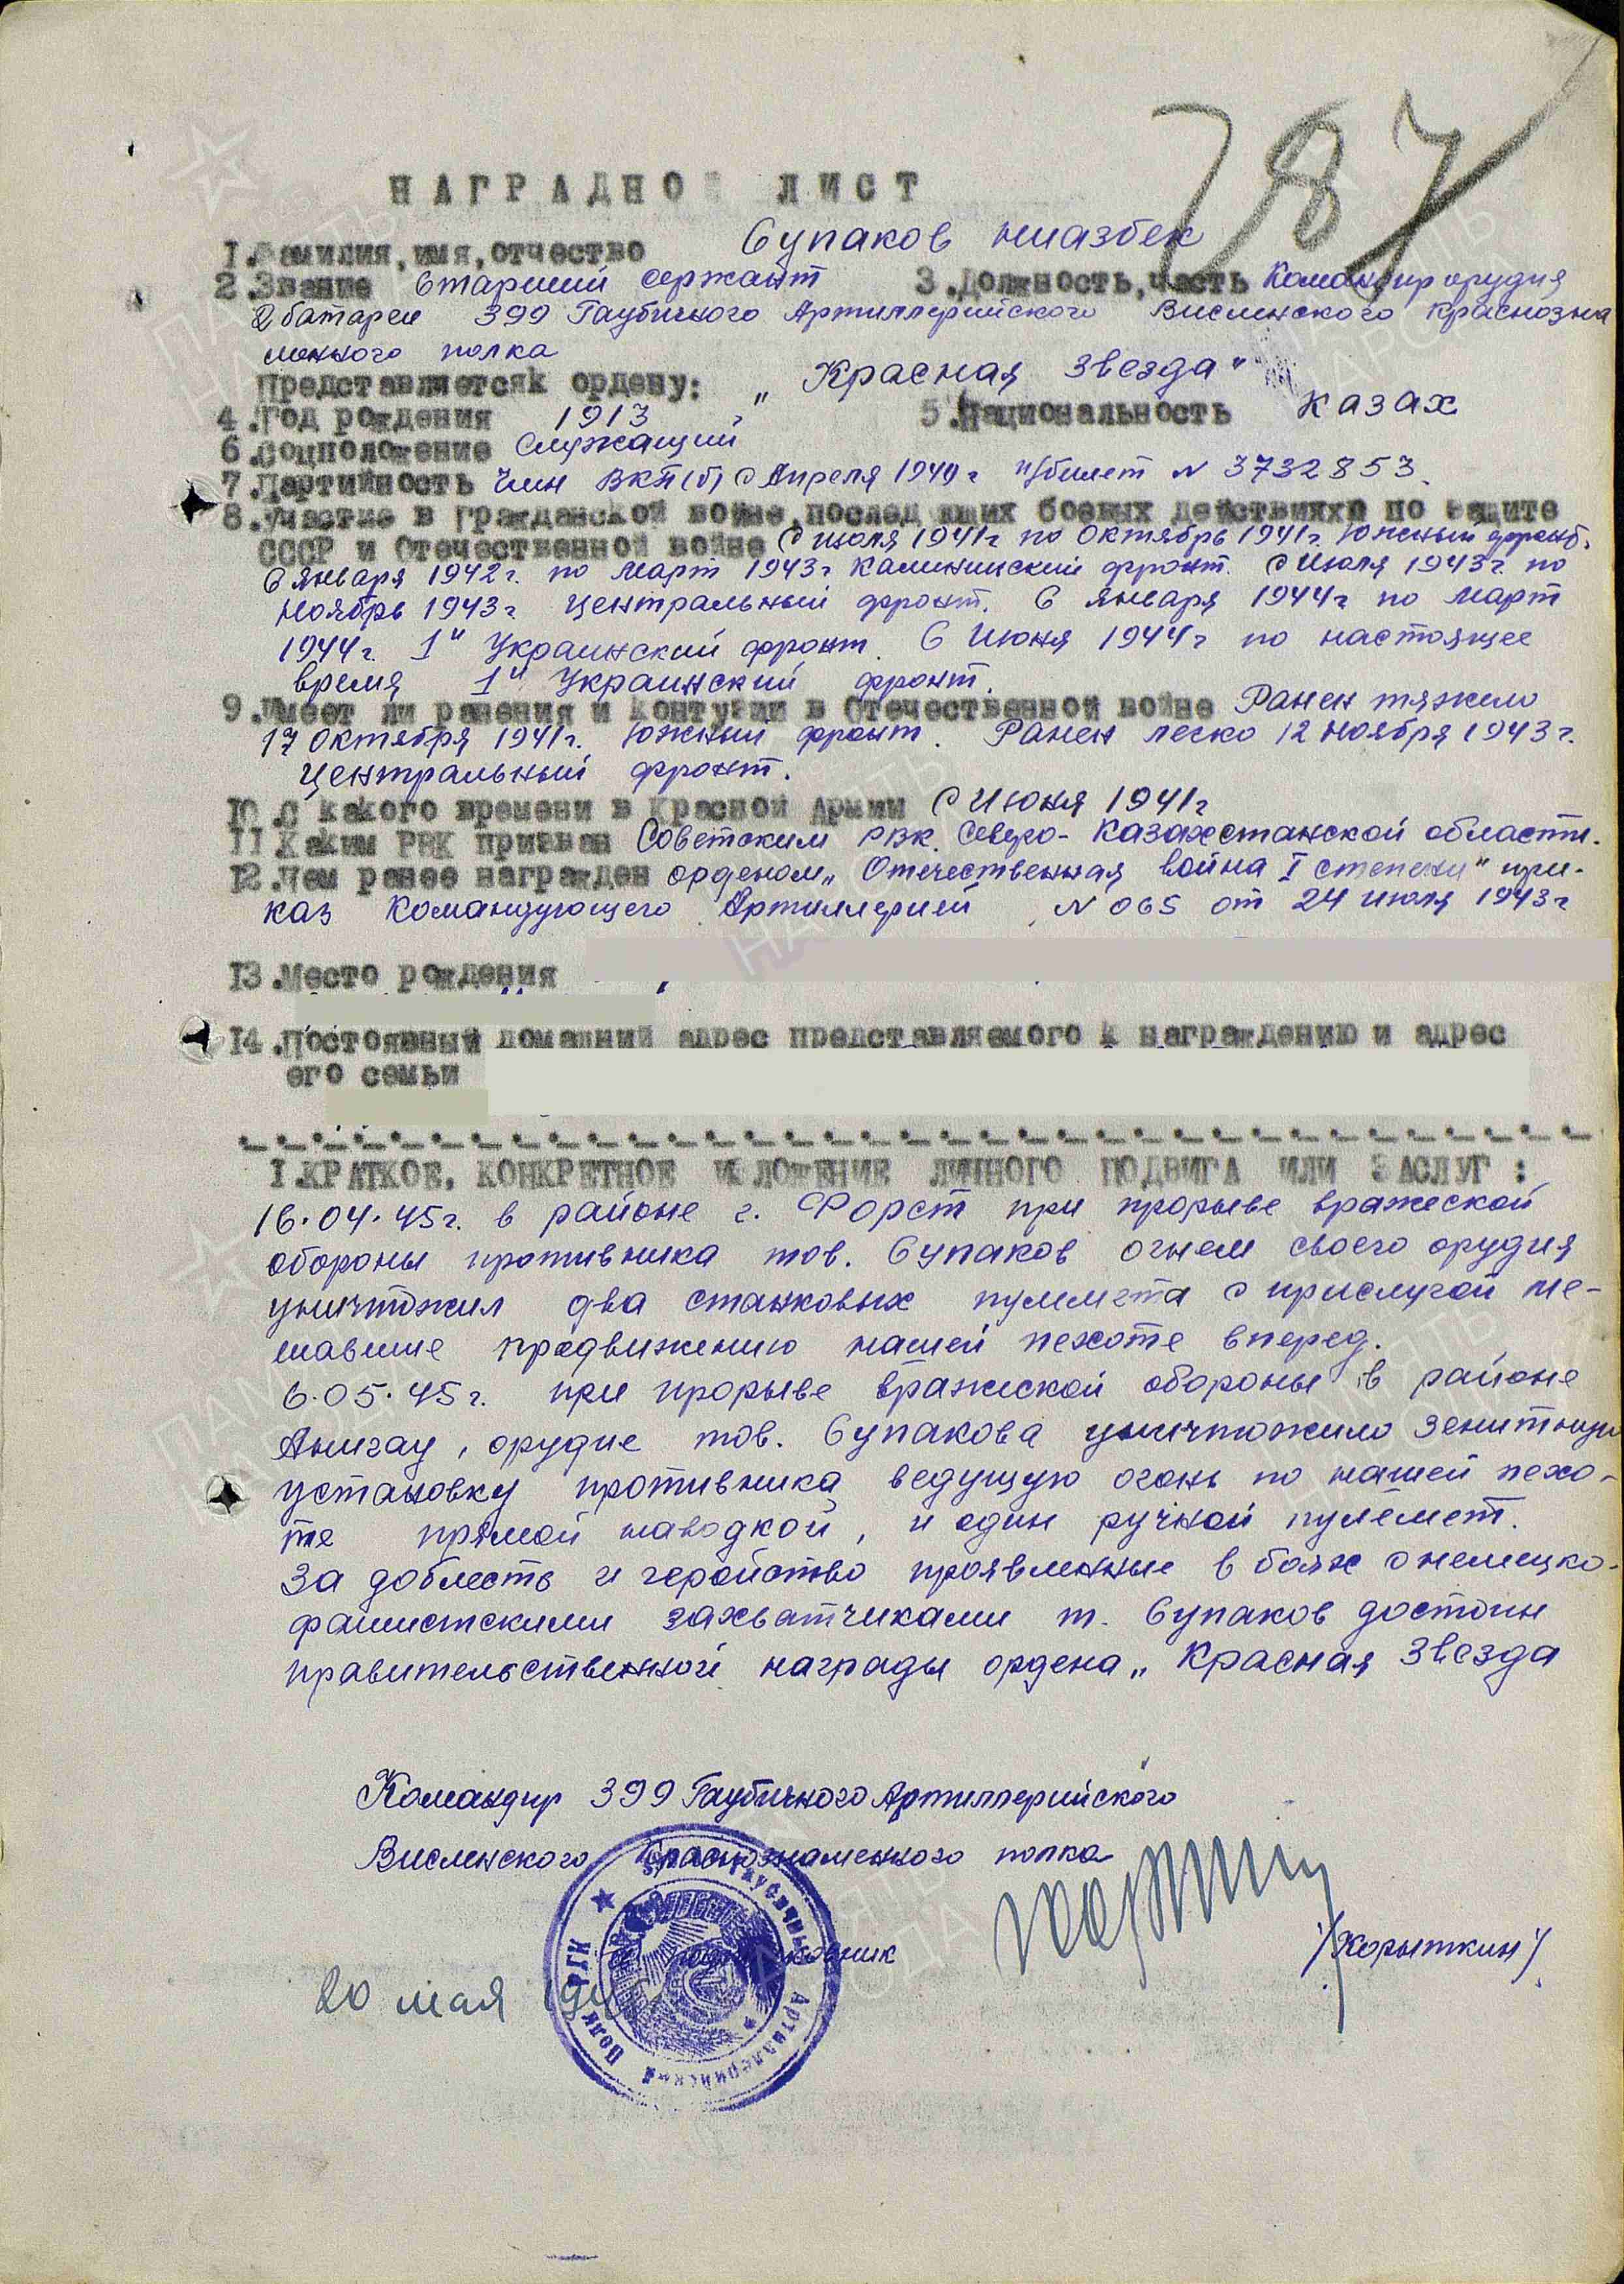 787
НАГРАДНОЙ ЛИСТ
1.Фамилия, имя, отчество Супаков Ниазбек
2.Звание Старший сержант 3.Должность, часть Командир орудия
2 батареи 399 Гаубичного Артиллерийского Висленского Краснозна
менного полка
Представляется к ордену: „Красная Звезда"
4.Год рождения 1913 5.Национальность казах
6.Соцположение Служащий
7.Партийность Член ВКП(б) с Апреля 1940г п/билет № 3732853.
8.Участие в гражданской войне, последующих боевых действиях по защите
СССР и Отечественной войне с июля 1941г по Октябрь 1941г. Южный фронт.
С января 1942г. по Март 1943г Калининский фронт. С Июля 1943г. по
Ноябрь 1943г Центральный фронт. С января 1944г по Март
1944г. 1й Украинский фронт. С Июня 1944г по настоящее
время 1й Украинский фронт.
9.Имеет ли ранения и контузии в Отечественной войне Ранен тяжело
17 Октября 1941г. Южный фронт. Ранен легко 12 Ноября 1943г.
Центральный фронт.
10.С какого времени в Красной Армии с Июня 1941г
11 Каким РВК призван Советским РВК. Северо-Казахстанской области.
12.Чем ранее награжден орденом „Отечественная война I степени" при-
каз Командующего Артиллерией № 065 от 24 июля 1943г
13.Место рождения
14.Постоянный домашний адрес представляемого к награждению и адрес
его семьи
I.КРАТКОЕ, КОНКРЕТНОЕ ИЗЛОЖЕНИЕ ЛИЧНОГО ПОДВИГА ИЛИ ЗАСЛУГ:
16.04.45г. в районе г. Форст при прорыве вражеской
обороны противника тов. Супаков огнем своего орудия
уничтожил два станковых пулемета с прислугой ме-
шавшие продвижению нашей пехоте вперед.
6.05.45г. при прорыве вражеской обороны в районе
орудие тов. Супакова уничтожило зенитную
установку противника ведущую огонь по нашей пехо-
те прямой наводкой, и один ручной пулемет.
За доблесть и геройство проявленные в боях с немецко-
фашистскими захватчиками т. Супаков достоин
правительственной награды ордена „Красная Звезда
Командир 399 Гаубичного Артиллерийского
Висленского Краснознаменного полка
подполковник
/Корыткин/
20 мая 1945
Гаубичный Артиллерийский Полк РГК